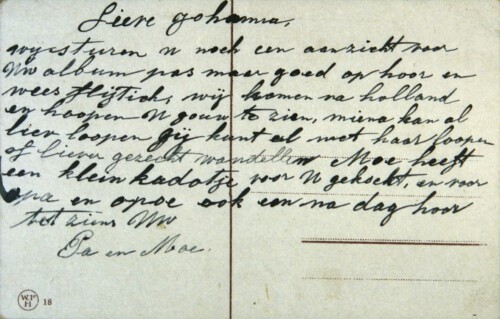 Lieve Johanna,
wij sturen U noch een aanzicht voor
Uw album pas maar goed op hoor en
wees flijtich, wij komen na holland
en hoopen U gouw te zien, miena kan al
liev loopen gij kunt al met haar loopen
of liever gezecht wandellen Moe heeft
een klein kadotje voor U gekocht, en voor
opa en opoe ook een na dag hoor
tot ziens Uw
Pa en Moe.
W.P.
H
18